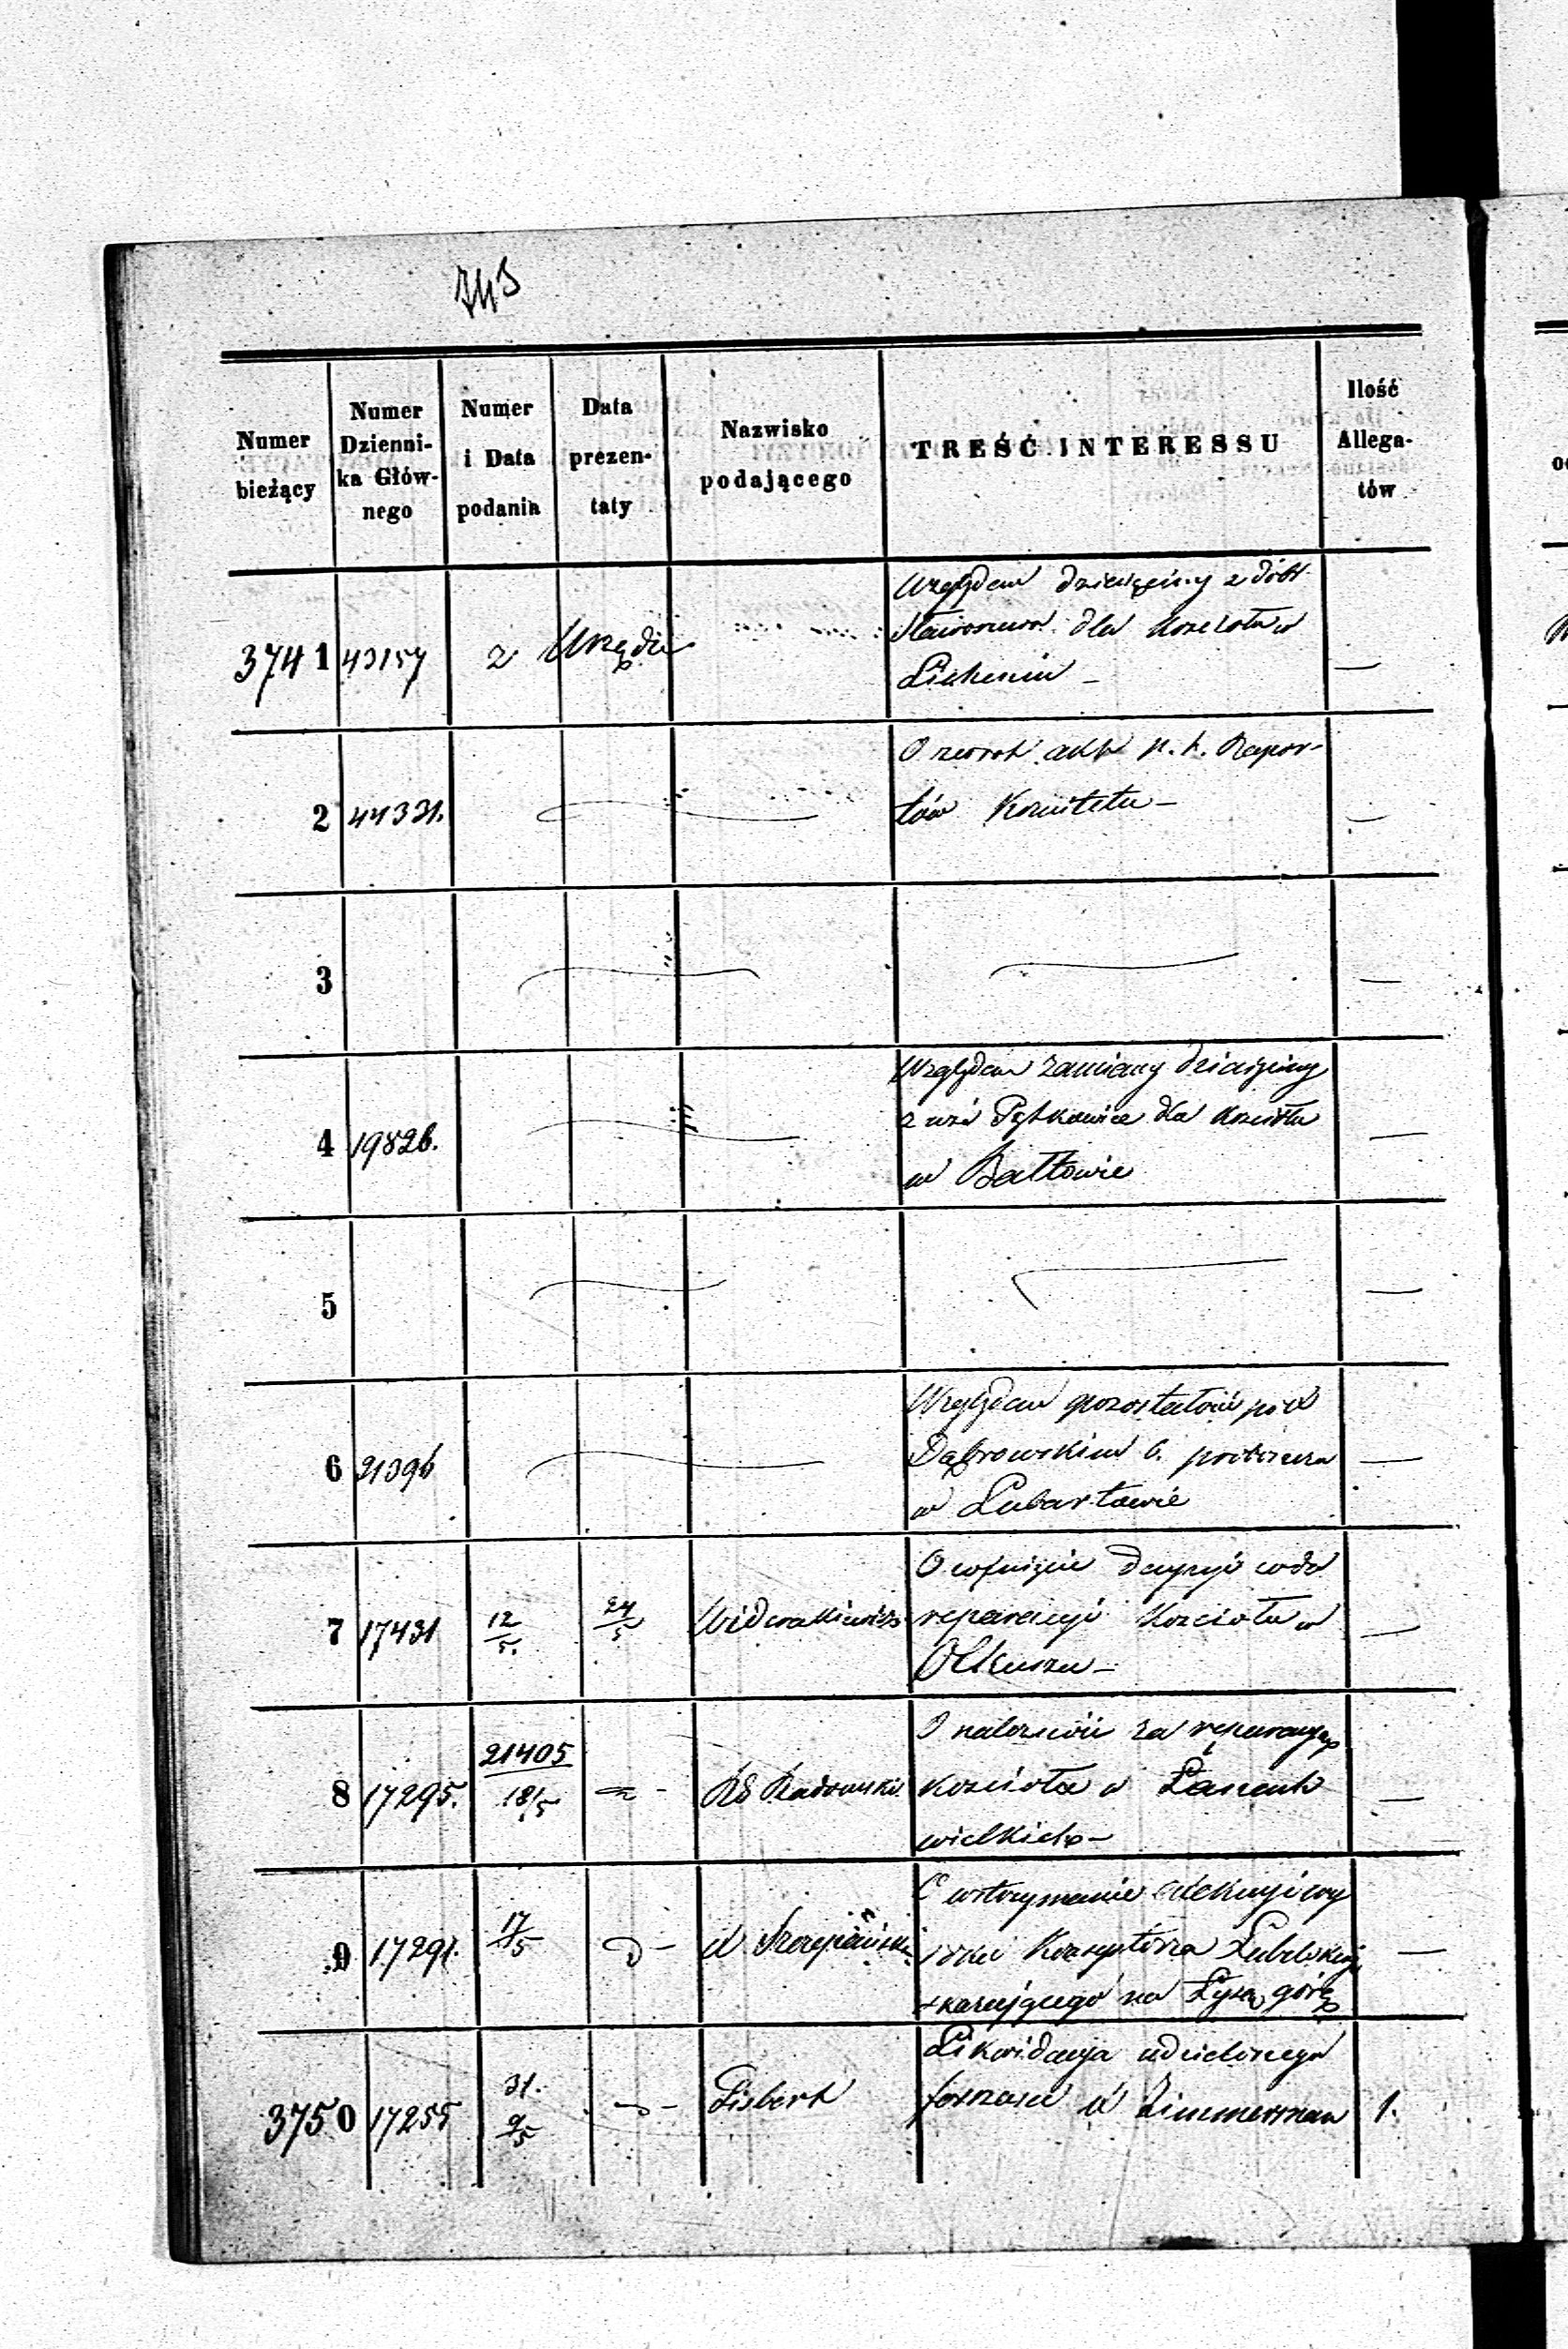 Numer bieżący
Numer Dzienni-ka Głów-nego
Numer i Data podania
Data prezen-taty
Nazwisko podającego
TREŚĆ INTERESSU
Ilość Allega-tów
3741 43157 z Urzędu
Względem dziesięciny z dóbr
dla Kościoła w
Licheniu —
2 44331.
O zwrot akt n. t. Rapor-
tów Komitetu —
3
4 19826.
Względem zamiany dziesięciny
z wsi Pętkowice dla Kościoła
w Bałtowie
5
6 21396
Względem pozostałości po X
Dąbrowskim b. proboszczu
w Lubartowie
7 17431 12/5. 24/5
O decyzji co do
reperacyi Kościoła w
Olkuszu —
8 17295. 21405 18/5 Radomski
O należność za reperacyą
Kościoła w
wielkich —
9 17291. 17/5 X Szczepański
O wstrzymanie exekucyi wy
Lubelskiego
skazującego na Łysą górę
3750 17255 31. 9/5 Lisbert
Likwidacya udzielonego
X Zimmerman 1.